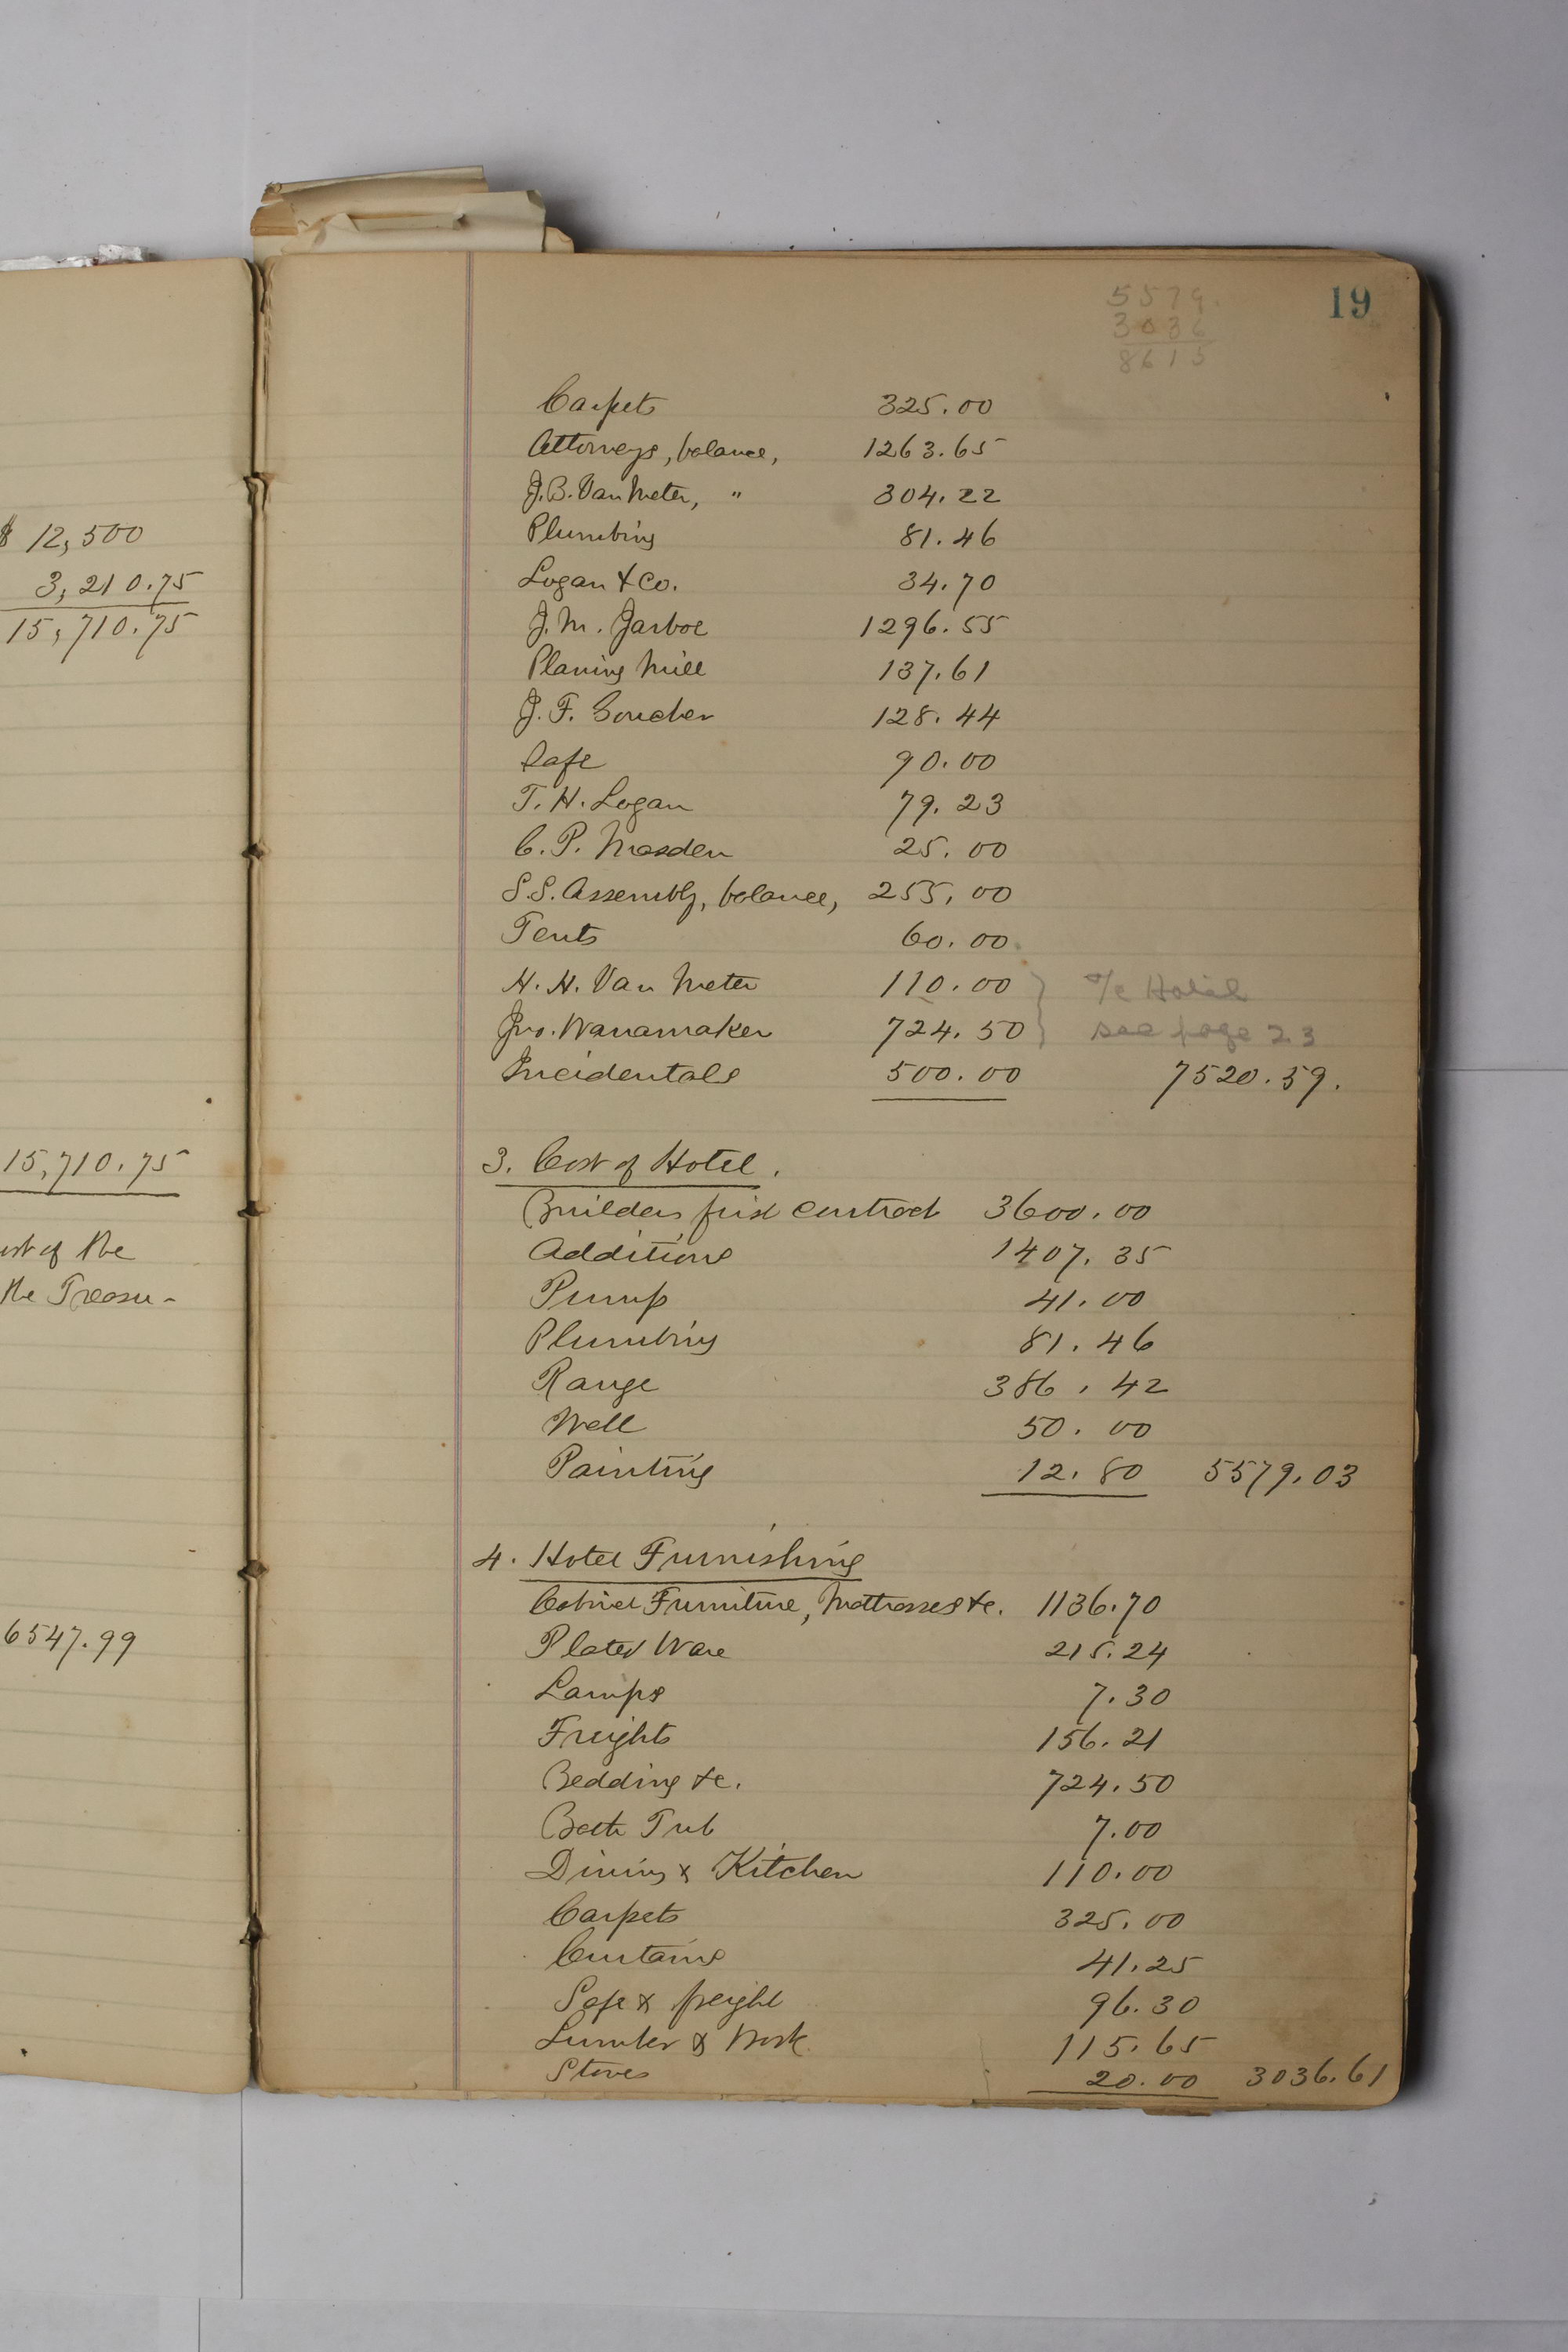 $ 12,500
3,210.75
15,710.75
15,710.75
ost of the
the Treasu-
6547.99
19
5579.
3036
8615
Carpets 325.00
Attorneys, balance, 1263.65
J.B. Van Meter, " 304.22
Plumbing 81.46
Logan & Co. 34.70
J.M. Jarboe 1296.55
Planing Mill 137.61
J. F. Goucher 128.44
Safe 90.00
T. H. Logan 79.23
C. P. Masden 25.00
S.S. Assembly, balance, 255.00
Tents 60.00
H. H. Van Meter 110.00 } a/c Hotel
Jno. Wanamaker 724.50 } see page 23
Incidentals 500.00 7520.59.
3. Cost of Hotel.
Builders first contract 3600.00
Additions 1407.35
Pump 41.00
Plumbing 81.46
Range 386.42
Well 50.00
Painting 12.80 5579.03
4. Hotel Furnishing
Cabinet Furniture, Mattrasses &c. 1136.70
Plated Ware 215.24
Lamps 7.30
Freights 156.21
Bedding &c. 724.50
Bath Tub 7.00
Dining & Kitchen 110.00
Carpets 325.00
Curtains 41.25
Safe & freight 96.30
Lumber & Work 115.65
Stoves 20.00 3036.61